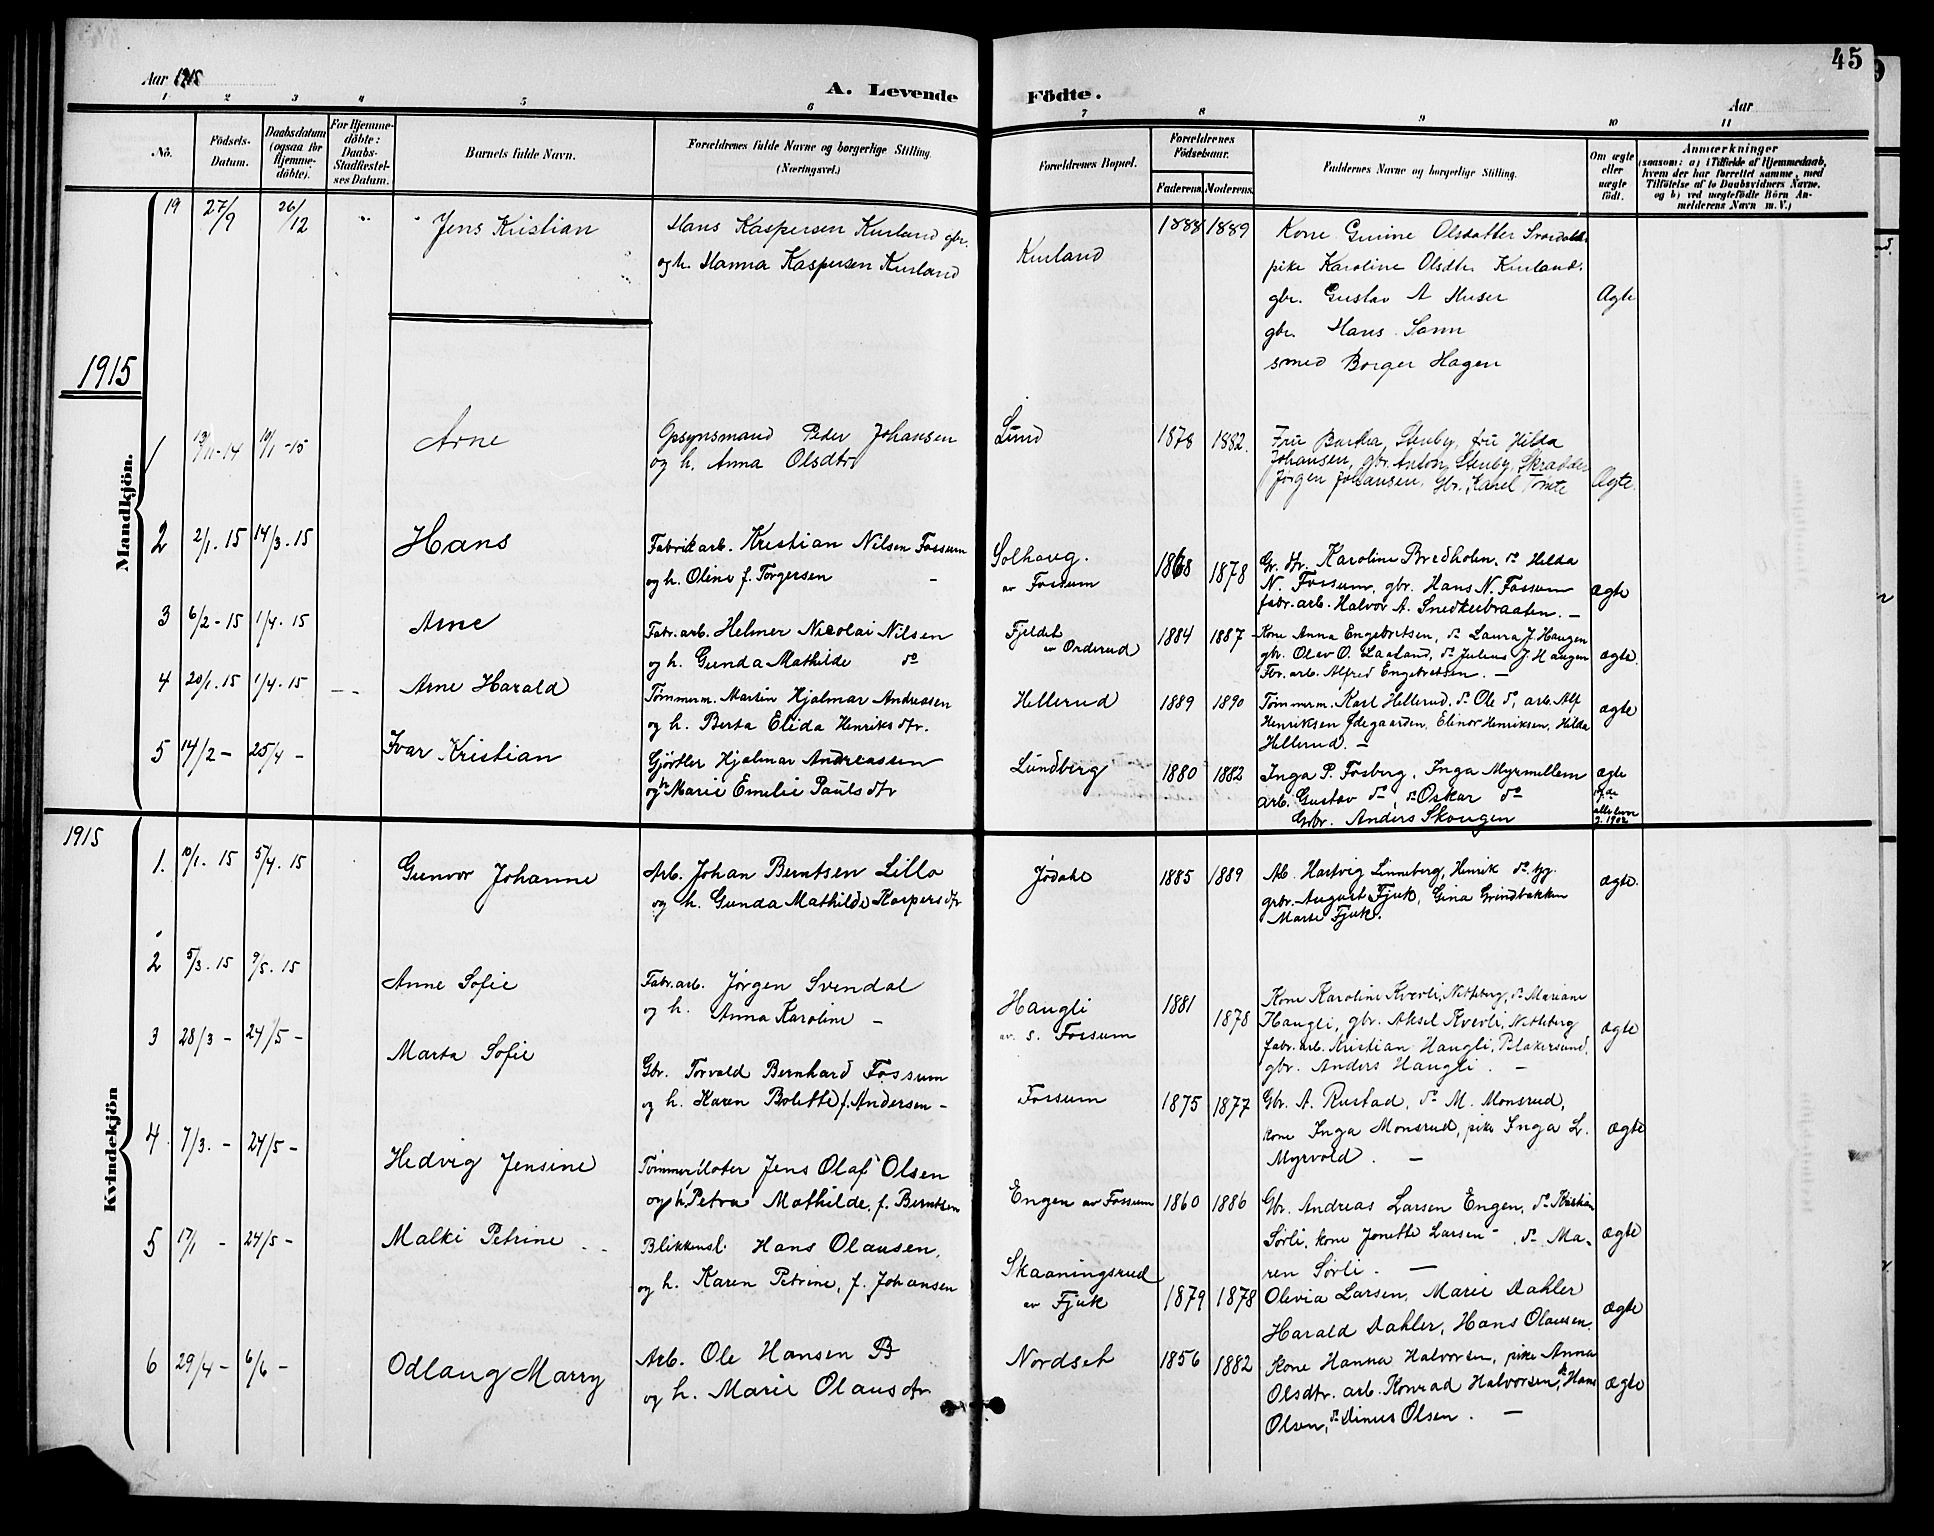 Aar 1915
A. Levende Födte.
45
Aar
1 2 3 4 5 6 7 8 9 10 11
No.
Födsels-Datum.
Daabsdatum (ogsaa for Hjemme-döbte).
For Hjemme-döbte: Daabs-Stadfæstel-ses Datum.
Barnets fulde Navn.
Forældrenes fulde Navne og borgerlige Stilling. (Næringsvei.)
Forældrenes Bopæl.
Forældrenes Födselsaar.
Faderens. Moderens.
Faddernes Navne og borgerlige Stilling.
Om ægte eller uægte födt.
Anmærkninger
(saasom: a) i Tilfælde af Hjemmedaab, hvem der har forrettet samme, med Tilföielse af to Daabsvidners Navne. og b) ved uægtefödte Börn An-melderens Navn m. V.)
19 27/9 26/12 " " Jens Kristian
Hans Kaspersen Kurland gbr.
og h. Hanna Kaspersen Kurland
Kurland
1888 1889
Kone Gunine Olsdatter
pike Karoline Olsdtr Kurland.
gbr. Gustav A Huser
gbr. Hans Sann
smed Borger Hagen
Ægte
1915
Mandkjön.
1 19/11-14 10/1-15 Arne
Opsynsmand Peder Johansen
og h. Anna Olsdtr
Lund
1878 1882.
Fru Barka Stenby, fru Hilda
Johansen, gbr. Anton Stenby, Skrædder
Jørgen Johansen, Gbr. Karel Tomte
Ægte.
2 2/1. 15 14/3. 15 Hans
Fabrikarb. Kristian Nilsen Fossum
og h. Oline f. Torgersen -
Solhaug.
av Fossum
1868 1878
Gr. dtr. Karoline Bredholen, do Hilda
N. Fossum, gbr. Hans N. Fossum
fabr. arb. Halvor A. Snedkerbraaten. -
ægte
3 6/2-15 1/4. 15 Arne
Fabr. arb. Helmer Nicolai Nilsen
og h. Gunda Mathilde do
Fjeldet
av Orderud
1884 1887
Kone Anna Engebretsen, do Laura J. Haugen
gbr. Olav O. Laaland, do Julius J Haugen
Fbr. arb. Alfred Engebretsen. -
ægte.
4 20/1. 15 1/4. 15 - - Arne Harald
Tømmerm. Martin Hjalmar Andreassen
og h. Berta Elida Henriksdtr.
Hellerud
1889 1890
Tømmerm. Karl Hellerud, do Ole do, arb. Alf
Henriksen Ødegaarden, Elinor Henriksen, Hilda
Hellerud. -
ægte
5 14/2 - 25/4 - Ivar Kristian
Gjørtler Hjalmar Andreassen
og h. Marie Emelie Paulsdtr
Lundberg
1880 1882
Inga P. Fosberg, Inga Myrmellem
arb. Gustav do, do Oskar do
Grbr. Anders Skougen
ægte
1915
Kvindekjön
1. 10/1. 15 5/4. 15 Gunvor Johanne
Arb. Johan Berntsen Lillo
og h. Gunda Mathilde Kaspersdtr
Jødahl
1885 1889
Ab. Hartvig Linneberg, Henrik do. tjg.
grbr. August Fjuk, Gina Grindbakken
Marte Fjuk.
ægte.
2 5/3. 15 9/5. 15 Anne Sofie
Fabr. arb. Jørgen Svendal
og h. Anna Karoline -
Haugli
av s. Fossum
1881 1878
Kone Karoline Kverli, Netteberg, do Mariane
Haugli, gbr. Aksel Kverli, Netteberg
fabr. arb. Kristian Haugli, Blakersund,
gbr. Anders Haugli. -
ægte
3 28/3 - 24/5 - Marta Sofie
Gbr. Torvald Bernhard Fossum
og h. Karen Bolette f. Andersen -
Fossum
1875 1877
Gbr. A. Rustad, do M. Monsrud,
kone Inga Monsrud, pike Inga L.
Myrvold. -
ægte
4. 7/3. - 24/5 - Hedvig Jensine
Tømmerfløter Jens Olaf Olsen
og h. Petra Mathilde, f. Berntsen
Engen av Fossum
1860 1886
Gbr. Andreas Larsen Engen, do Kristian
Sørli, kone Jonette Larsen - do Ma-
ren Sørli. -
ægte
5 17/1 - 24/5 - Malki Petrine - -
Blikkensl. Hans Olausen,
og h. Karen Petrine, f. Johansen
Skaaningsrud
av Fjuk
1879 1878
Olevia Larsen, Marie Dahler
Harald Dahler, Hans Olausen.
ægte
6 29/4 - 6/6 - Odlaug Marry
Arb. Ole Hansen B
og h. Marie Olausdtr
Nordset
1856 1882
kone Hanna Halvorsen, pike Anna
Olsdtr. arb. Konrad Halvorsen, Hans
Olsen, do Dinus Olsen. -
ægte